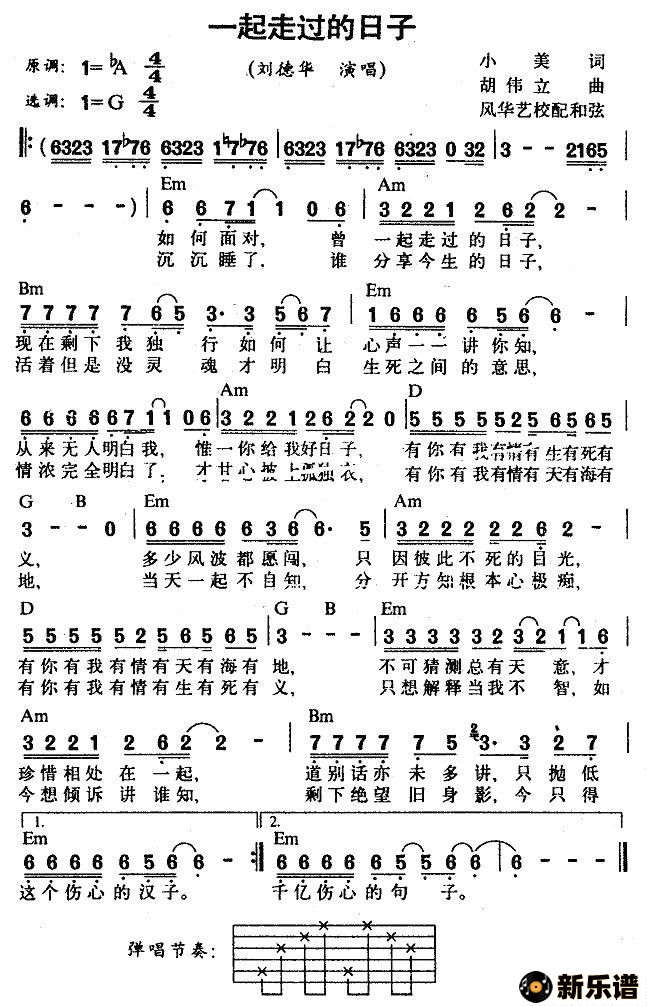 一起走过的日子
原调：1=♭A 4/4
(刘德华 演唱)
小美 词
胡伟立 曲
选调：1=G 4/4
风华艺校配和弦
‖: (6323 17♭76 6323 1♮7♭76 | 6323 17♭76 6323 0 32 | 3 - - 2165 |
Em Am
6 - - -) | 6 6 71 1 0 6 | 3 2 2 1 2 62 2 - |
如何面对， 曾 一起走过的日子，
沉沉睡了， 谁 分享今生的日子，
Bm Em
7 7 7 7 7 65 3· 3 56 7 | 1 6 6 6 6 56 6 - |
现在剩下我独 行如何让 心声一一讲你知，
活着但是没灵 魂才明白 生死之间的意思，
Am D
6 6 6 6 671 1 0 6 | 3 2 2 1 2 62 2 0 | 5 5 5 5 5 2 5 6 5 6 5 |
从来无人明白我， 惟一你给我好日子， 有你有我有情有生有死有
情浓完全明白了， 才甘心披上孤独衣， 有你有我有情有天有海有
G B Em Am
3 - - 0 | 6 6 6 6 6 36 6· 5 | 3 2 2 2 2 2 6 2 - |
义， 多少风波都愿闯， 只 因彼此不死的目光，
地， 当天一起不自知， 分 开方知根本心极痴，
D G B Em
5 5 5 5 5 2 5 6 5 6 5 | 3 - - - | 3 3 3 3 3 2 32 1 1 6 |
有你有我有情有天有海有 地， 不可猜测总有天 意，才
有你有我有情有生有死有 义， 只想解释当我不 智，如
Am Bm
3 2 2 1 2 62 2 - | 7 7 7 7 7 5 3· 3 2 7 |
珍惜相处在一起， 道别话亦未多讲，只抛低
今想倾诉讲谁知， 剩下绝望旧身影，今只得
1. 2.
Em Em
6 6 6 6 6 56 6 - :‖ 6 6 6 6 65 56 6 - | 6 - - - ‖
这个伤心的汉子。 千亿伤心的句 子。
弹唱节奏：
新乐谱